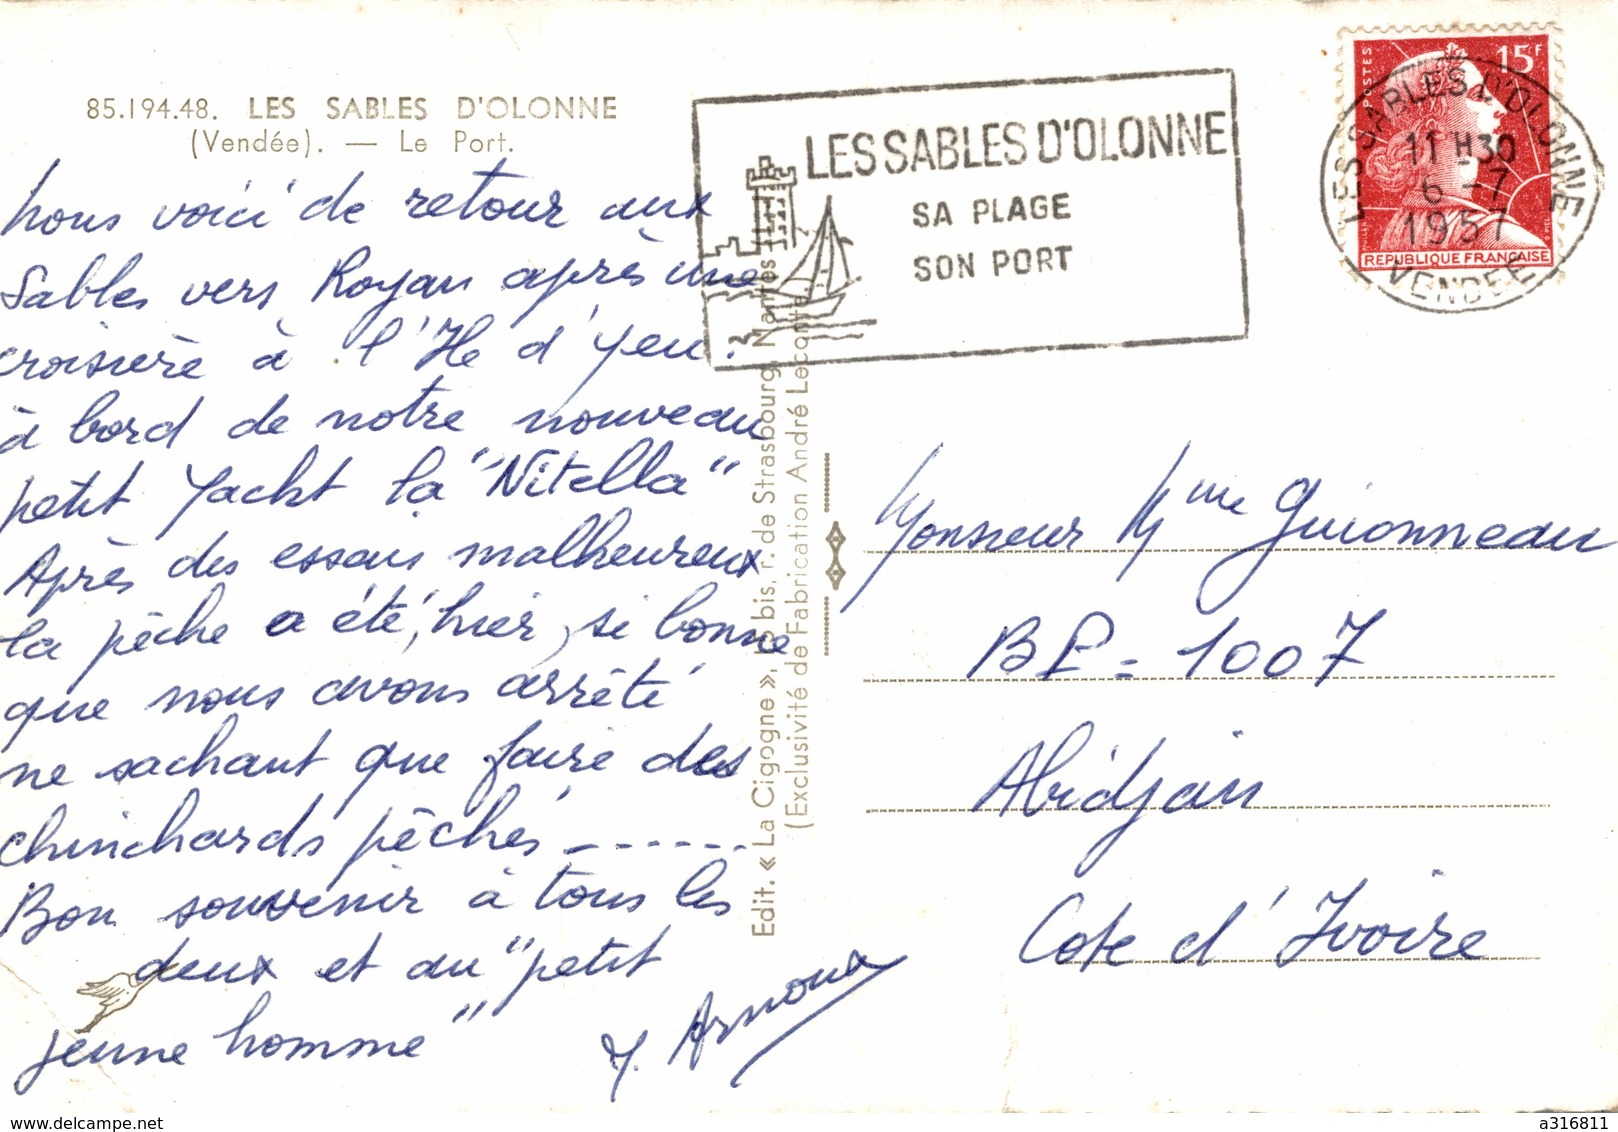 85.194.48. LES SABLES D'OLONNE
(Vendée). — Le Port.
Nous voici de retour aux
Sables vers Royan après une
croisière à l'Ile d'Yeu.
à bord de notre nouveau
petit Yacht la "Nitella"
Après des essais malheureux
la pêche a été, hier, si bonne
que nous avons arrêté
ne sachant que faire des
chinchards pêchés ------
Bon souvenir à tous les
deux et au "petit
jeune homme"
Y. Arnoux
Edit. « La Cigogne », bis, r. de Strasbourg, Nantes
(Exclusivité de Fabrication André Leconte
LES SABLES D'OLONNE
SA PLAGE
SON PORT
POSTES
15F
REPUBLIQUE FRANÇAISE
LES SABLES D'OLONNE
11 H30
6 -7
1957
VENDEE
Monsieur Mme Guionneau
BP = 1007
Abidjan
Cote d'Ivoire
Delcampe.net
a316811